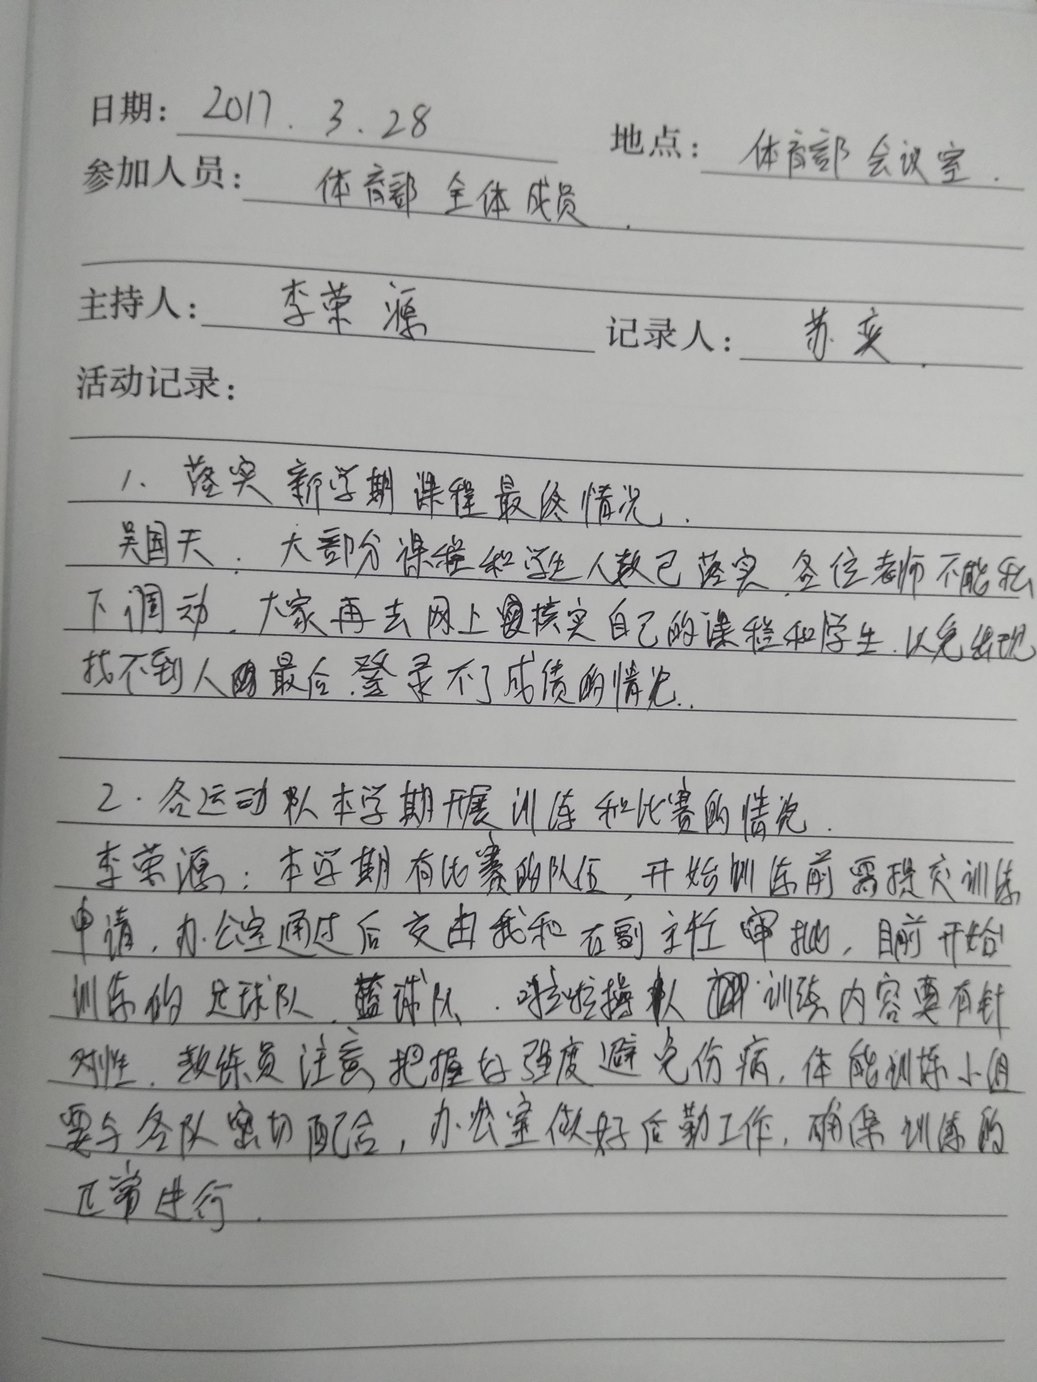 日期：2017.3.28 地点：体育部会议室.
参加人员：体育部全体成员.
主持人：李荣源 记录人：苏奕.
活动记录：
1. 落实新学期课程最终情况.
吴国天：大部分课程和学生人数已落实，各位老师不能私
下调动，大家再去网上核实自己的课程和学生，以免出现
找不到人最后登录不了成绩的情况.
2. 各运动队本学期开展训练和比赛的情况.
李荣源：本学期有比赛的队伍，开始训练前需提交训练
申请，办公室通过后交由我和左副主任审批，目前开始
训练的足球队、蓝球队、啦啦操队训练内容要有针
对性，教练员注意把握好强度避免伤病，体能训练小组
要与各队密切配合，办公室做好后勤工作，确保训练的
正常进行.